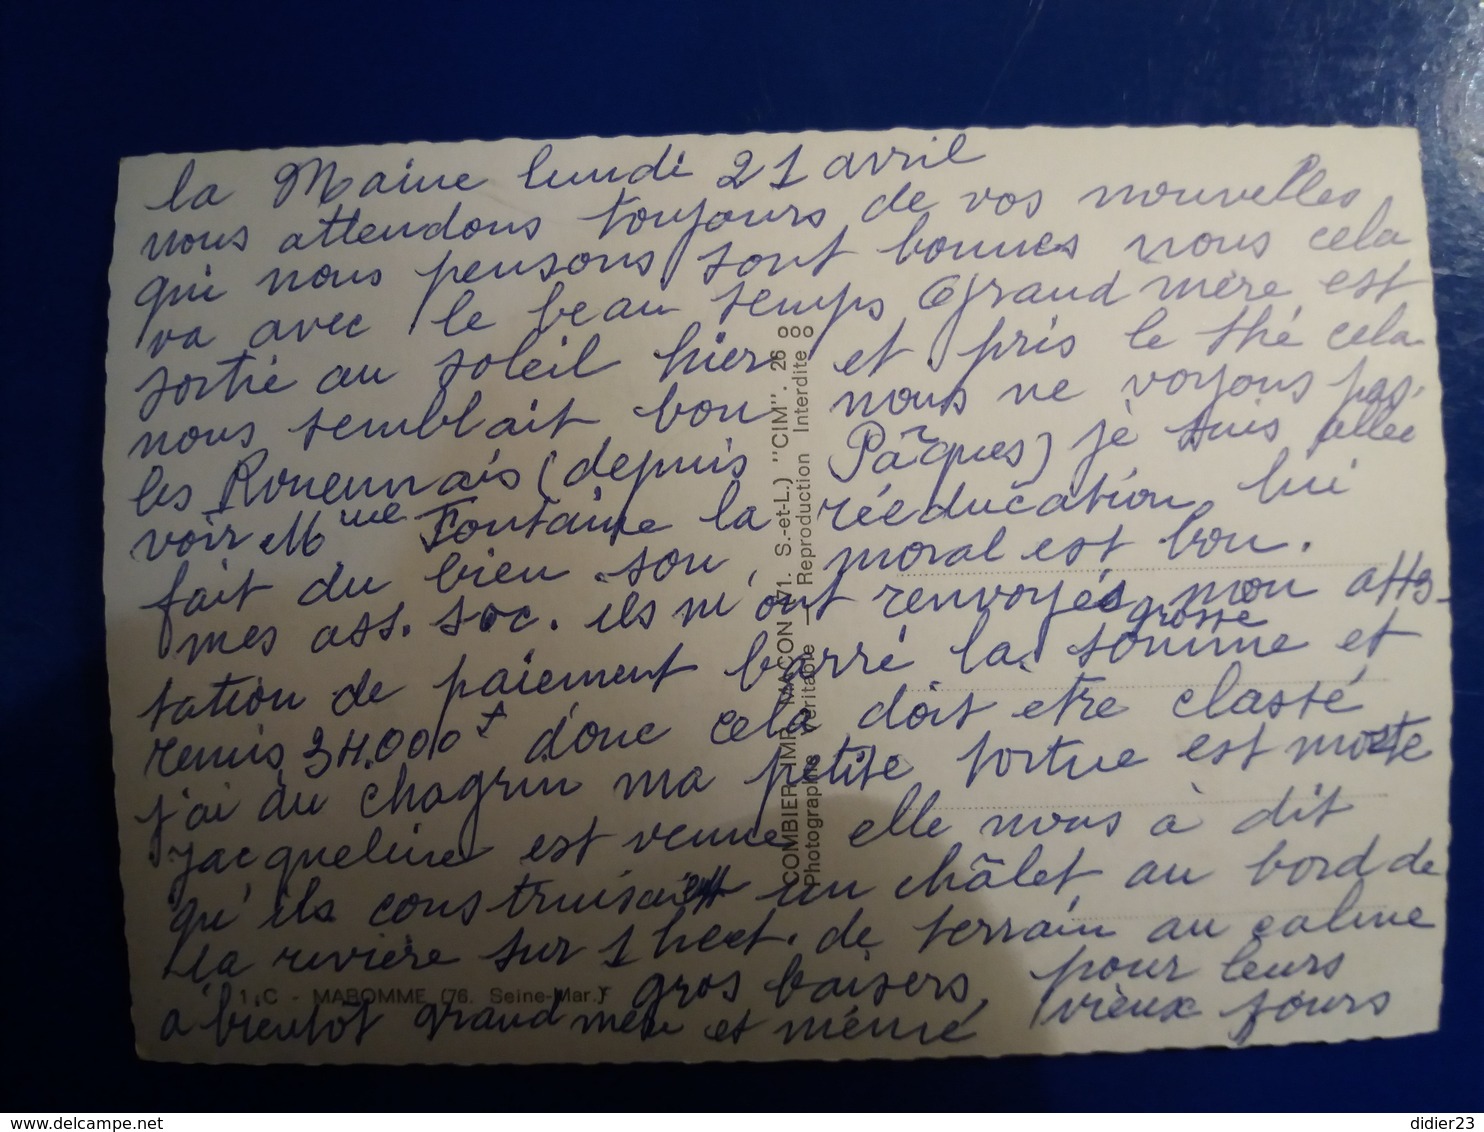 la Maine lundi 21 avril
nous attendons toujours de vos nouvelles
qui nous pensons sont bonnes nous cela
va avec le beau temps Grand mère est
sortie au soleil hier et pris le thé cela
nous semblait bon nous ne voyons pas
les Rouennais (depuis Pâques) je suis allée
voir Mme Fontaine la rééducation lui
fait du bien son moral est bon.
mes ass. soc. ils m'ont renvoyés mon atts-
grosse
tation de paiement barré la somme et
remis 34.000 f donc cela doit etre classé
j'ai du chagrin ma petite tortue est morte
Jacqueline est venue elle nous à dit
qu'ils construisaient un châlet au bord de
la rivière sur 1 hect. de terrain au calme
gros baisers pour leurs
à bientôt grand mère et mémé vieux jours
COMBIER IMP. MACON (71. S.-et-L.) "CIM". 26
Photographie Véritable — Reproduction Interdite
1.C - MABOMME (76. Seine-Mar.)
delcampe.net
didier23